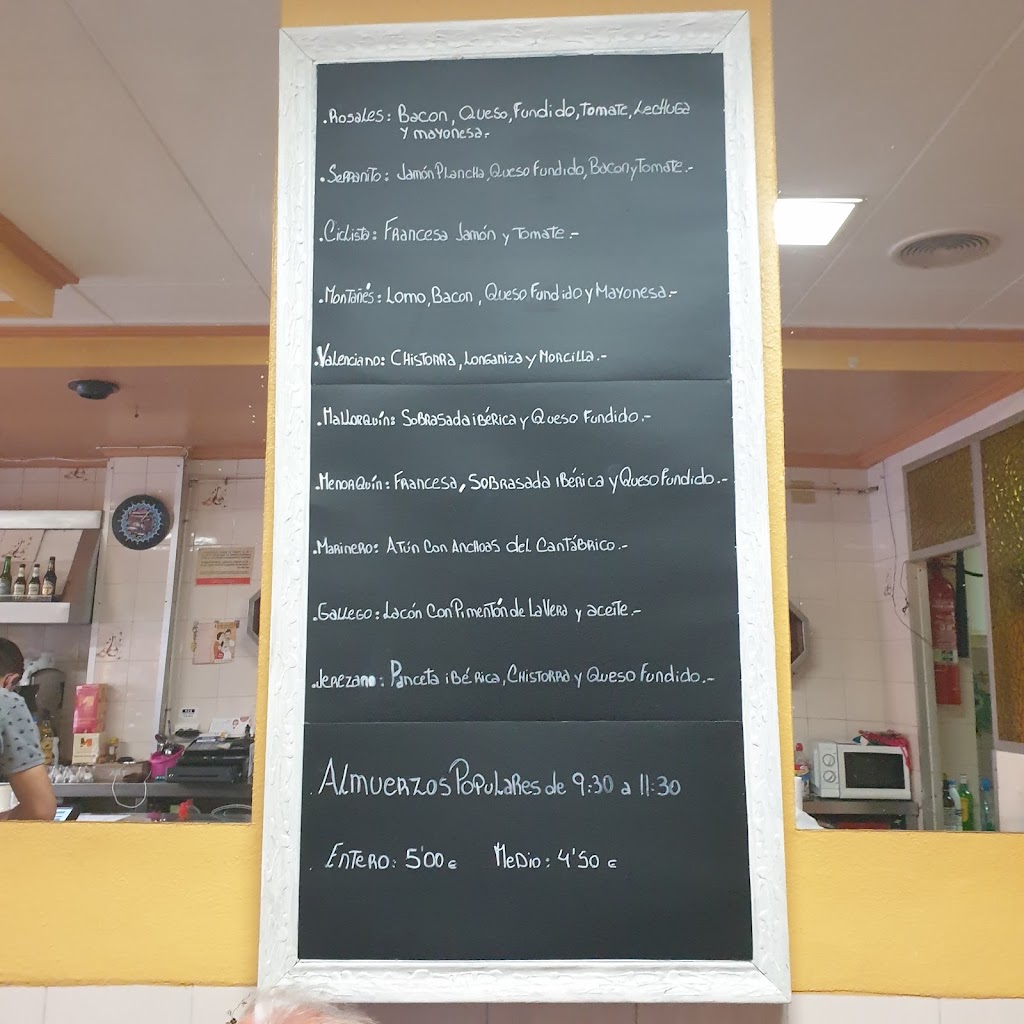 .Rosales: Bacon, Queso, Fundido, Tomate, Lechuga
y mayonesa.-
.Serranito: Jamón Plancha, Queso Fundido, Bacon y Tomate.-
.Ciclista: Francesa Jamón y Tomate.-
.Montañés: Lomo, Bacon, Queso Fundido y Mayonesa.-
.Valenciano: Chistorra, Longaniza y Morcilla.-
.Mallorquín: Sobrasada ibérica y Queso Fundido.-
.Menorquín: Francesa, Sobrasada ibérica y Queso Fundido.-
.Marinero: Atún con Anchoas del Cantábrico.-
.Gallego: Lacón con Pimentón de La Vera y aceite.-
.Jerezano: Panceta ibérica, Chistorra y Queso Fundido.-
.Almuerzos Populares de 9:30 a 11:30
.Entero: 5'00 € Medio: 4'50 €